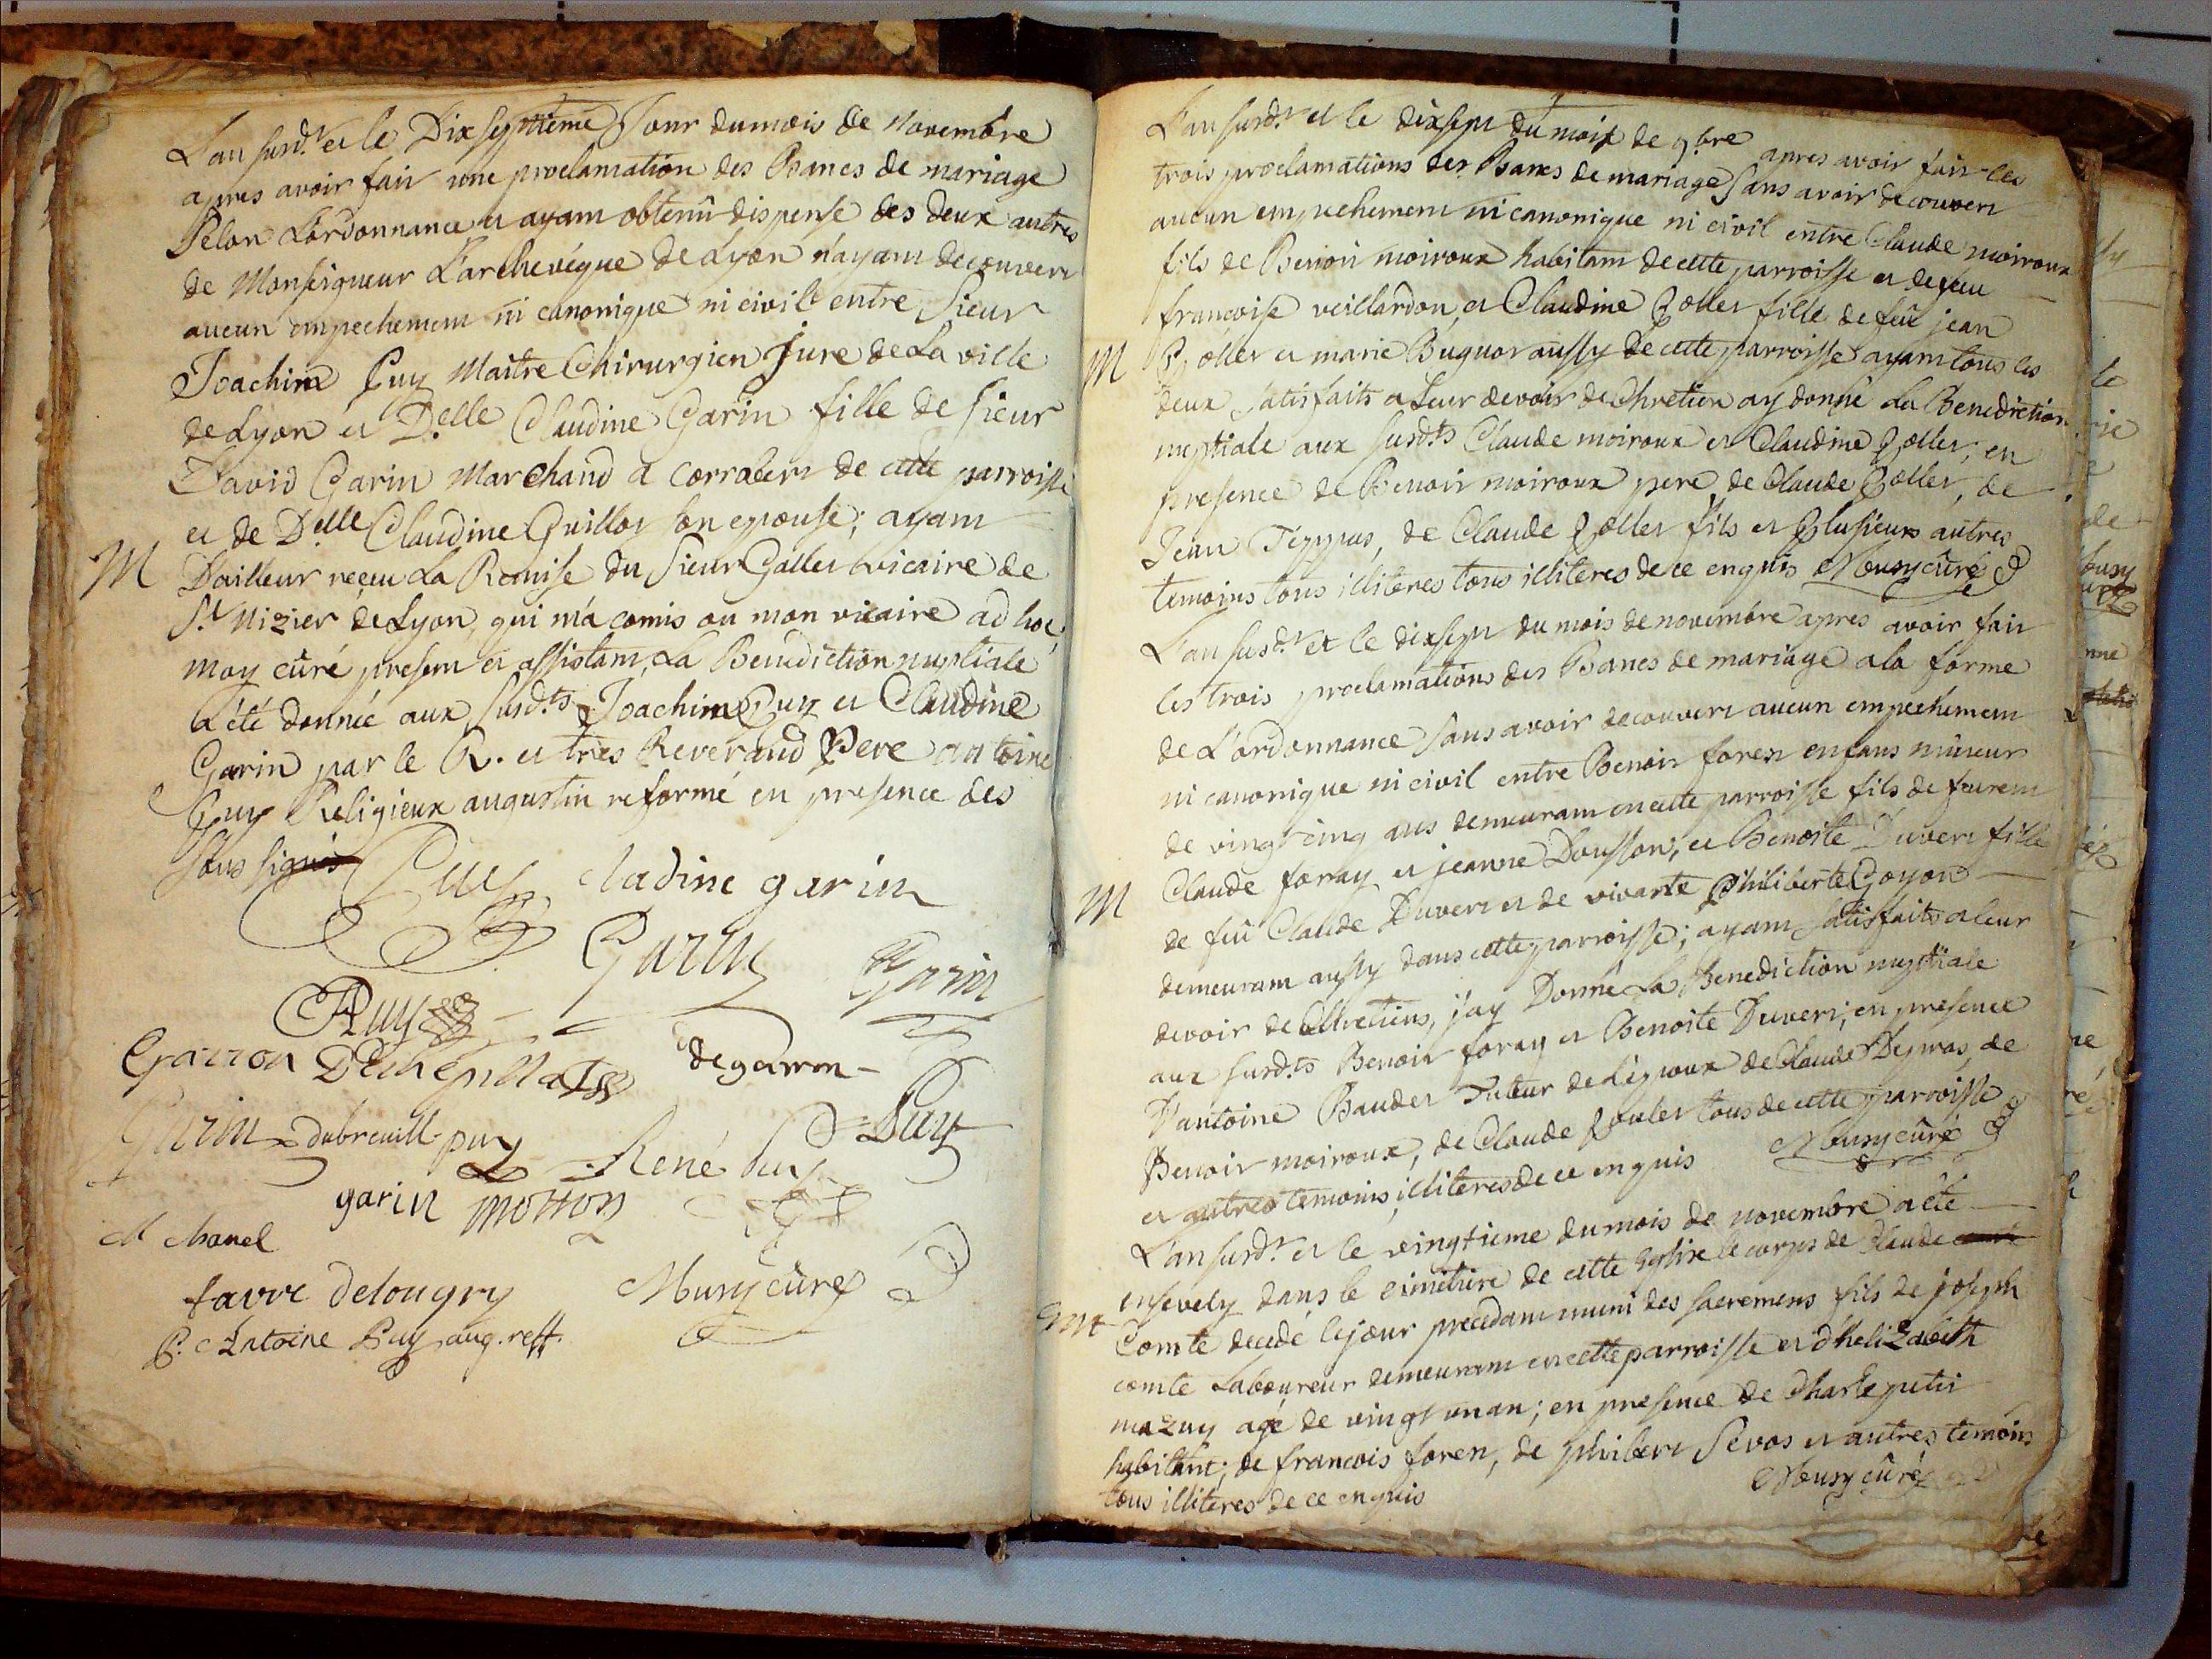 L'an susd.t et le Dix septieme Jour du mois de Novembre
apres avoir fait une proclamation des Bancs de mariage
selon L'ordonnance et ayant obtenû dispense des deux autres
de Monseigneur L'archevéque de Lyon n'ayant decouvert
aucun empechement ni canonique ni civil entre Sieur
Joachim Puy Maitre Chirurgien Juré de La ville
de Lyon et D.elle Claudine Garin fille de Sieur
David Garin Marchand a de cette parroisse
et de D.elle Claudine Guillot son epouse; ayant
M D'ailleur reçeu La Remise du Sieur Gallet vicaire de
S.t Nizier de Lyon, qui m'a comis ou mon vicaire ad hoc,
moy cûré present et assistant, La Benediction nuptiale
a été donnée aux susd.ts Joachim Puy et Claudine
Garin par le R. et tres Reverand Pere antoine
Puy Religieux augustin reformé en presence des
sous signés
Puy cladine garin
Garin Garin
Puy
Garron Dechepilla degarron
Garin dubreuill puy René Puy Puy
garin motton
M Manel
favre delongry Musy cûré
P. Antoine Puy aug. reff.
L'an susd.t et le dixsept du mois de 9.bre apres avoir fait les
trois proclamations des Bancs de mariage sans avoir decouvert
aucun empechement ni canonique ni civil entre Claude moiroux
fils de Benoit moiroux habitant de cette parroisse et de feue
francoise veillardon, et Claudine Pollet fille de feû jean
M Pollet et marie Buguot aussy de cette parroisse ayant tous les
deux satisfaits a Leur devoir de Chretien ay donné La Benediction
nuptiale aux susd.ts Claude moiroux et Claudine Pollet, en
presence de Benoit moiroux pere, de Claude Pollet, de
Jean de Claude Pollet fils et Plusieurs autres
temoins tous illiteres tous illiteres de ce enquis Musy cûré
L'an susd.t et le dixsept du mois de novembre apres avoir fait
les trois proclamations des Bancs de mariage a la forme
de L'ordonnance sans avoir decouvert aucun empechement
ni canonique ni civil entre Benoit forest enfans mineur
de vingt cinq ans demeurant en cette parroisse fils de
Claude foray et jeanne Dousson, et Benoite Duvert fille
M de feû Claude Duvert et de vivante Philiberte Goyon
demeurant aussy dans cette parroisse; ayant satisfaits a leur
devoir de Chretiens, j'ay Donné La Benediction nuptiale
aux susd.ts Benoit foray et Benoite Duvert, en presence
D'antoine Baudet Tuteur de L'epoux de Claude Depras, de
Benoit moiroux, de Claude tous de cette parroisse
et autres temoins illiteres de ce enquis Musy cûré
L'an susd.t et le vingtieme du mois de novembre a été
ensevely dans le cimetiere de cette Eglise le corps de Claude
mt Comte decedé le jour precedant muni des sacremens fils de joseph
comte Laboureur demeurant en cette parroisse et d'helizabeth
mazuy agé de vingt un an; en presence de Charle petit
habitant; de francois foren, de phibert Sevos et autres temoins
tous illiteres de ce enquis Musy cûré